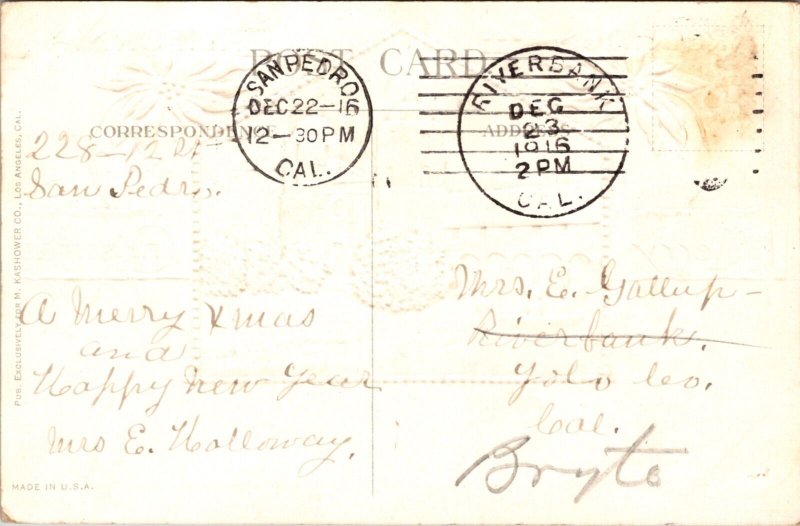 POST CARD
SAN PEDRO
DEC 22-16
12-30 PM
CAL.
RIVERBANK
DEC
23
1916
2 PM
CAL.
CORRESPONDENCE
ADDRESS
228-12
San Pedro.
A Merry Xmas
and
Happy New Year
Mrs E. Holloway.
Mrs. E. Gallup-
Riverbank.
Yolo Co.
Cal.
Bryte
PUB. EXCLUSIVELY FOR M. KASHOWER CO., LOS ANGELES, CAL.
MADE IN U.S.A.